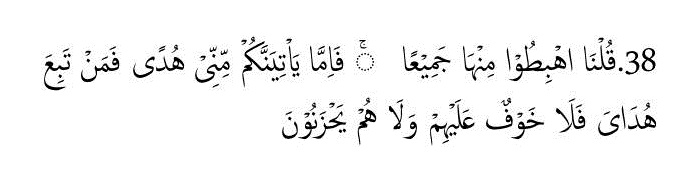 38.قُلْنَا اهْبِطُوْا مِنْهَا جَمِيْعًا ۚ فَاِمَّا يَاْتِيَنَّكُمْ مِّنِّىْ هُدًى فَمَنْ تَبِعَ
هُدَاىَ فَلَا خَوْفٌ عَلَيْهِمْ وَلَا هُمْ يَحْزَنُوْنَ